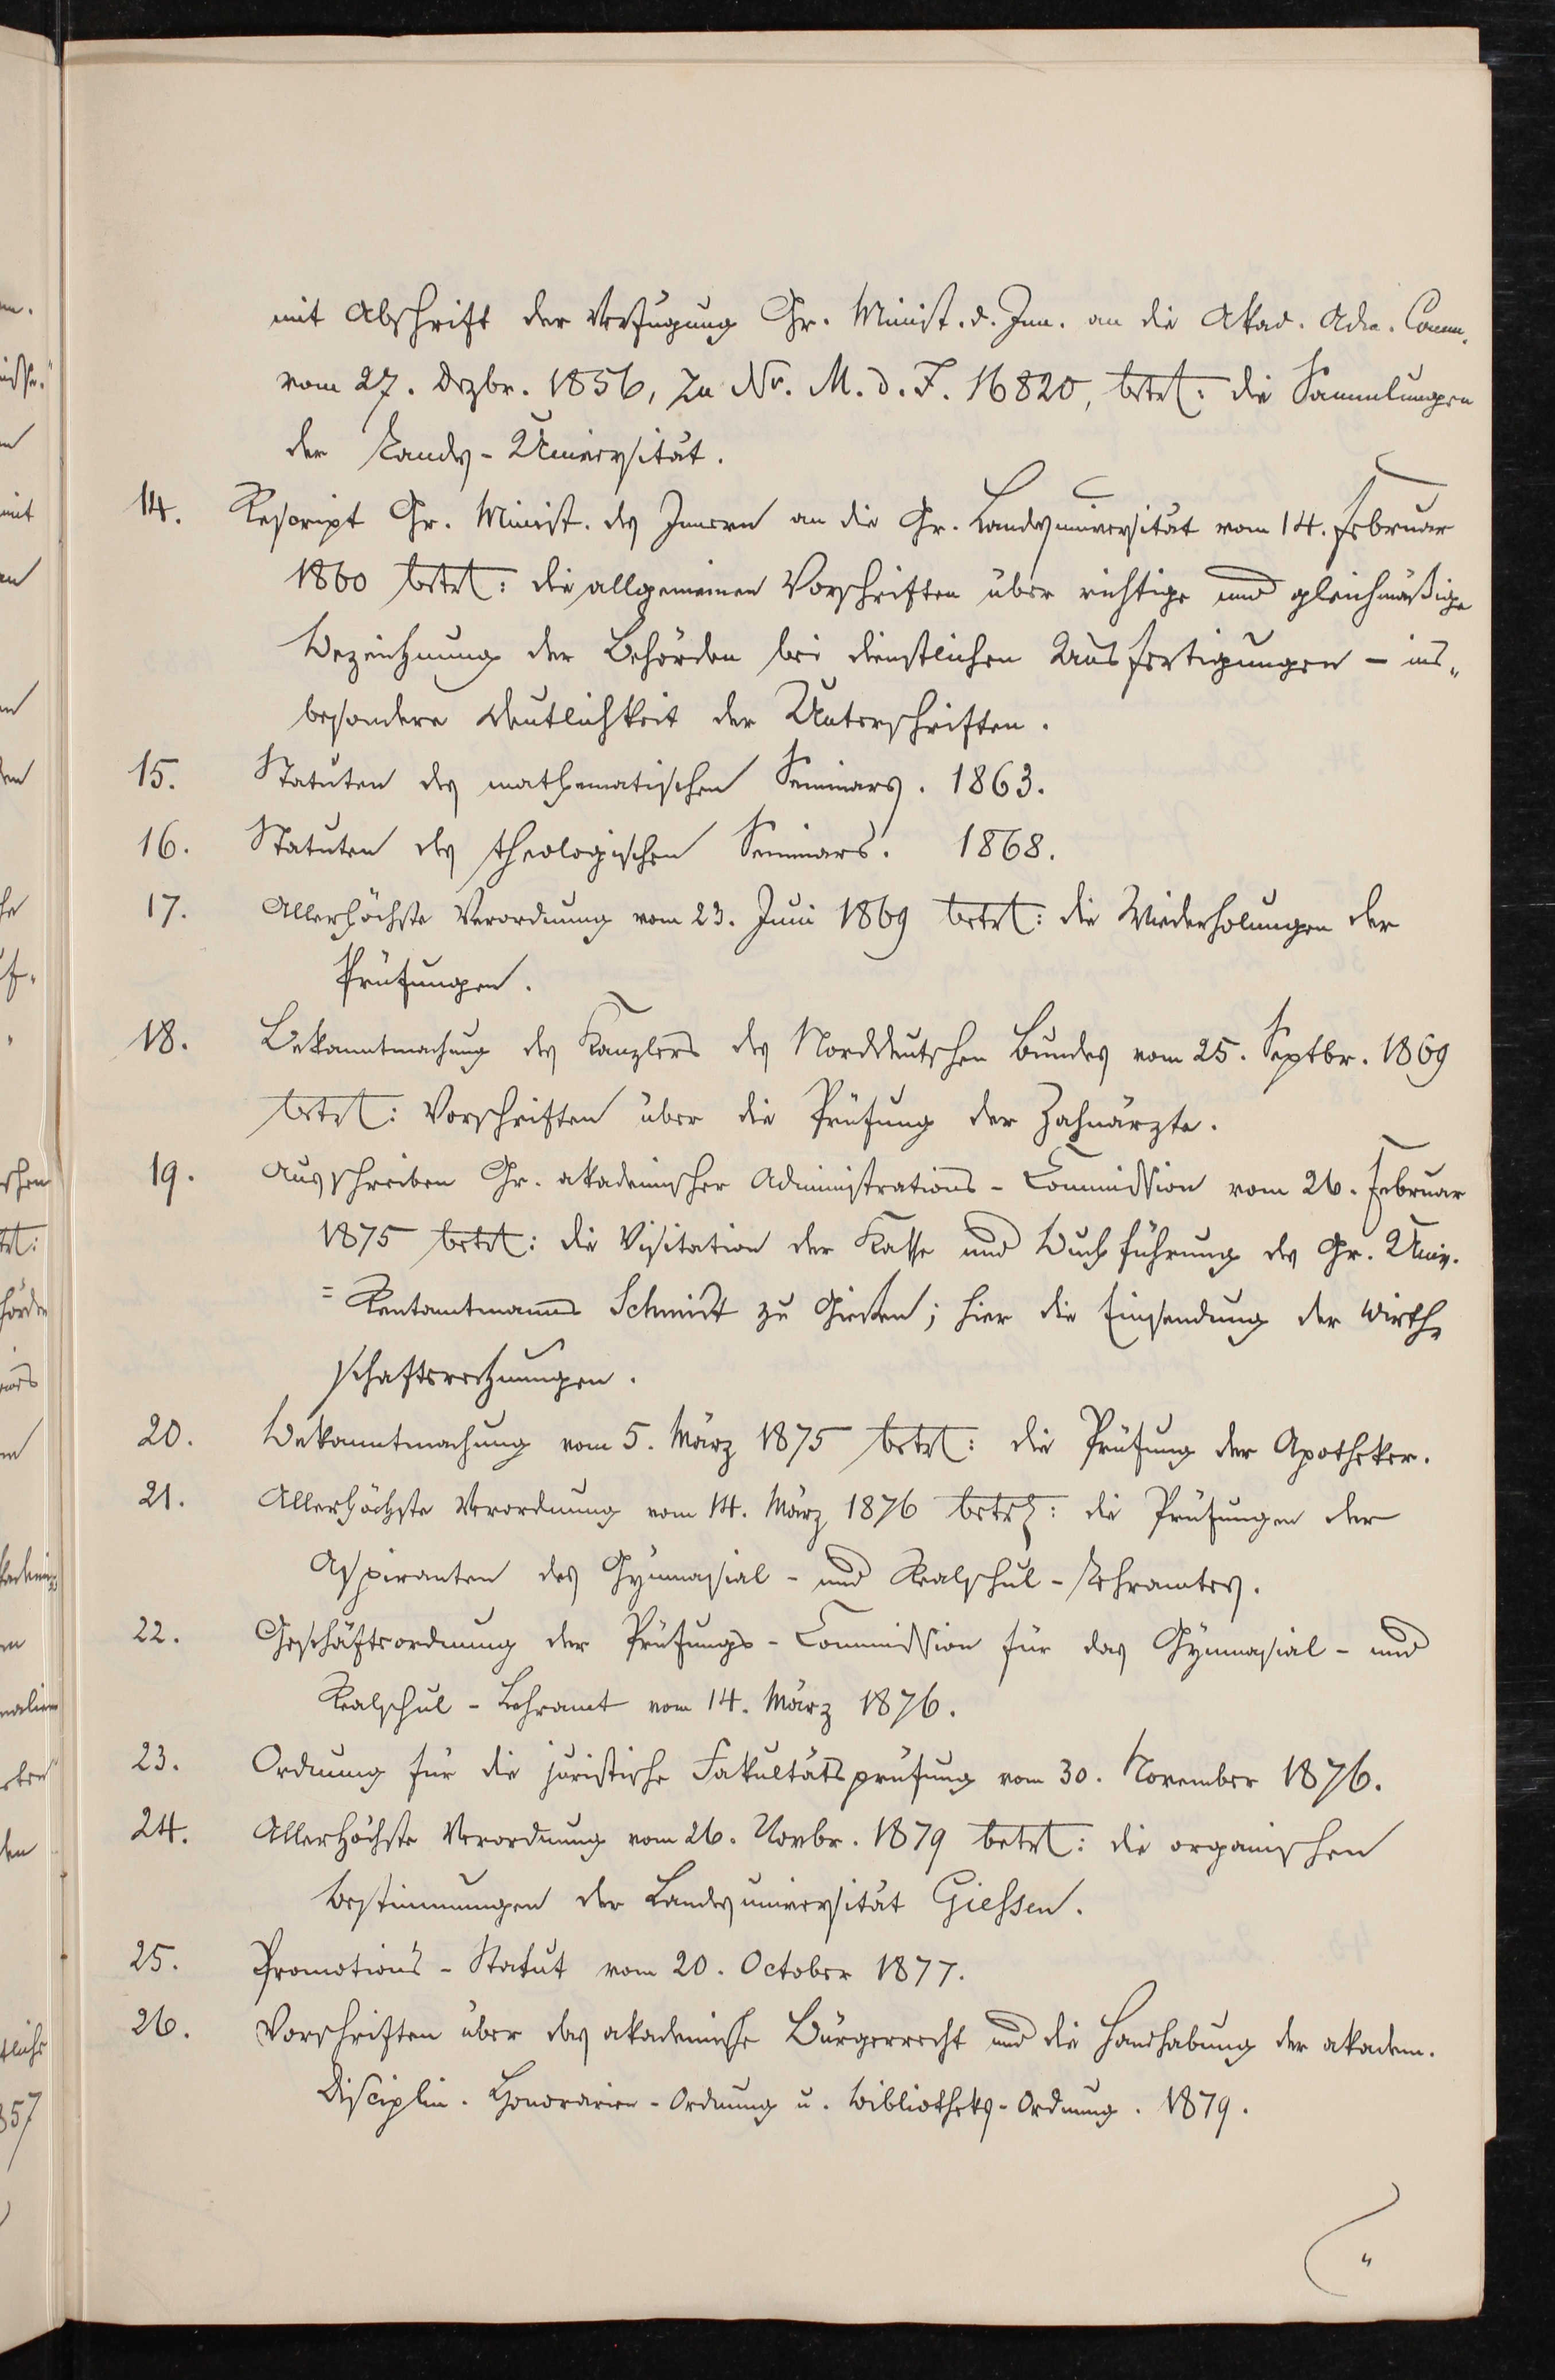 mit Abschrift der Verfügung Gr. Minist. d. Inn. an die Akad. Adm. Comm.
vom 27. Dezbr. 1856, zu Nr. M. d. I. 16820, betr.: die Sammlungen
der Landes-Universität.
14. Rescript Gr. Minist. des Innern an die Gr. Landesuniversität vom 14. Februar
1860 betr.: die allgemeinen Vorschriften über richtige und gleichmäßige
Bezeichnung der Behörden bei dienstlichen Ausfertigungen - ins„
besondere Deutlichkeit der Unterschriften.
15. Statuten des mathematischen Seminars. 1863.
16. Statuten des theologischen Seminars. 1868.
17. Allerhöchste Verordnung vom 23. Juni 1869 betr.: die Wiederholungen der
Prüfungen.
18. Bekanntmachung des Kanzlers des Norddeutschen Bundes vom 25. Septbr. 1869
betr.: Vorschriften über die Prüfung der Zahnärzte.
19. Ausschreiben Gr. akademischer Administrations-Commission vom 26. Februar
1875 betr.: die Visitation der Kasse und Buchführung des Gr. Univ.
=Rentamtmanns Schmidt zu Gießen; hier die Einsendung der Wirth„
schaftsrechnungen.
20. Bekanntmachung vom 5. März 1875 betr.: die Prüfung der Apotheker.
21. Allerhöchste Verordnung vom 14. März 1876 betr.: die Prüfungen der
Aspiranten des Gymnasial- und Realschul-Lehramtes.
22. Geschäftsordnung der Prüfungs-Commission für das Gymnasial- und
Realschul-Lehramt vom 14. März 1876.
23. Ordnung für die juristische Fakultätsprüfung vom 30. November 1876.
24. Allerhöchste Verordnung vom 26. Novbr. 1879 betr.: die organischen
Bestimmungen der Landesuniversität Giessen.
25. Promotions-Statut vom 20. October 1877.
26. Vorschriften über das akademische Bürgerrecht und die Handhabung der akadem.
Disciplin. Honorarien-Ordnung u. Bibliotheks-Ordnung. 1879.